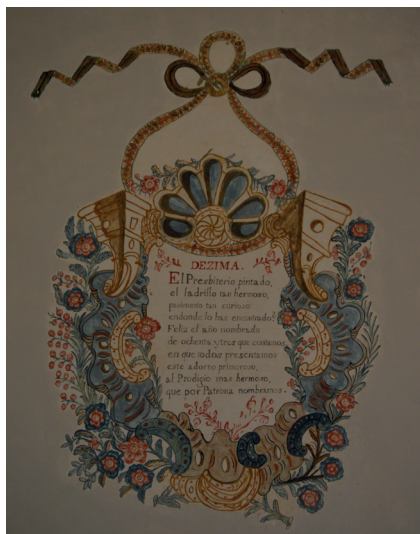 DEZIMA.
El Presbiterio pintado,
el ladrillo tan hermoso,
pavimento tan curioso
endonde lo has encontrado?
Feliz el año nombrado
de ochenta y tres que contamos,
en que todos presentamos
este adorno primoroso,
al Prodigio mas hermoso,
que por Patrona nombramos.